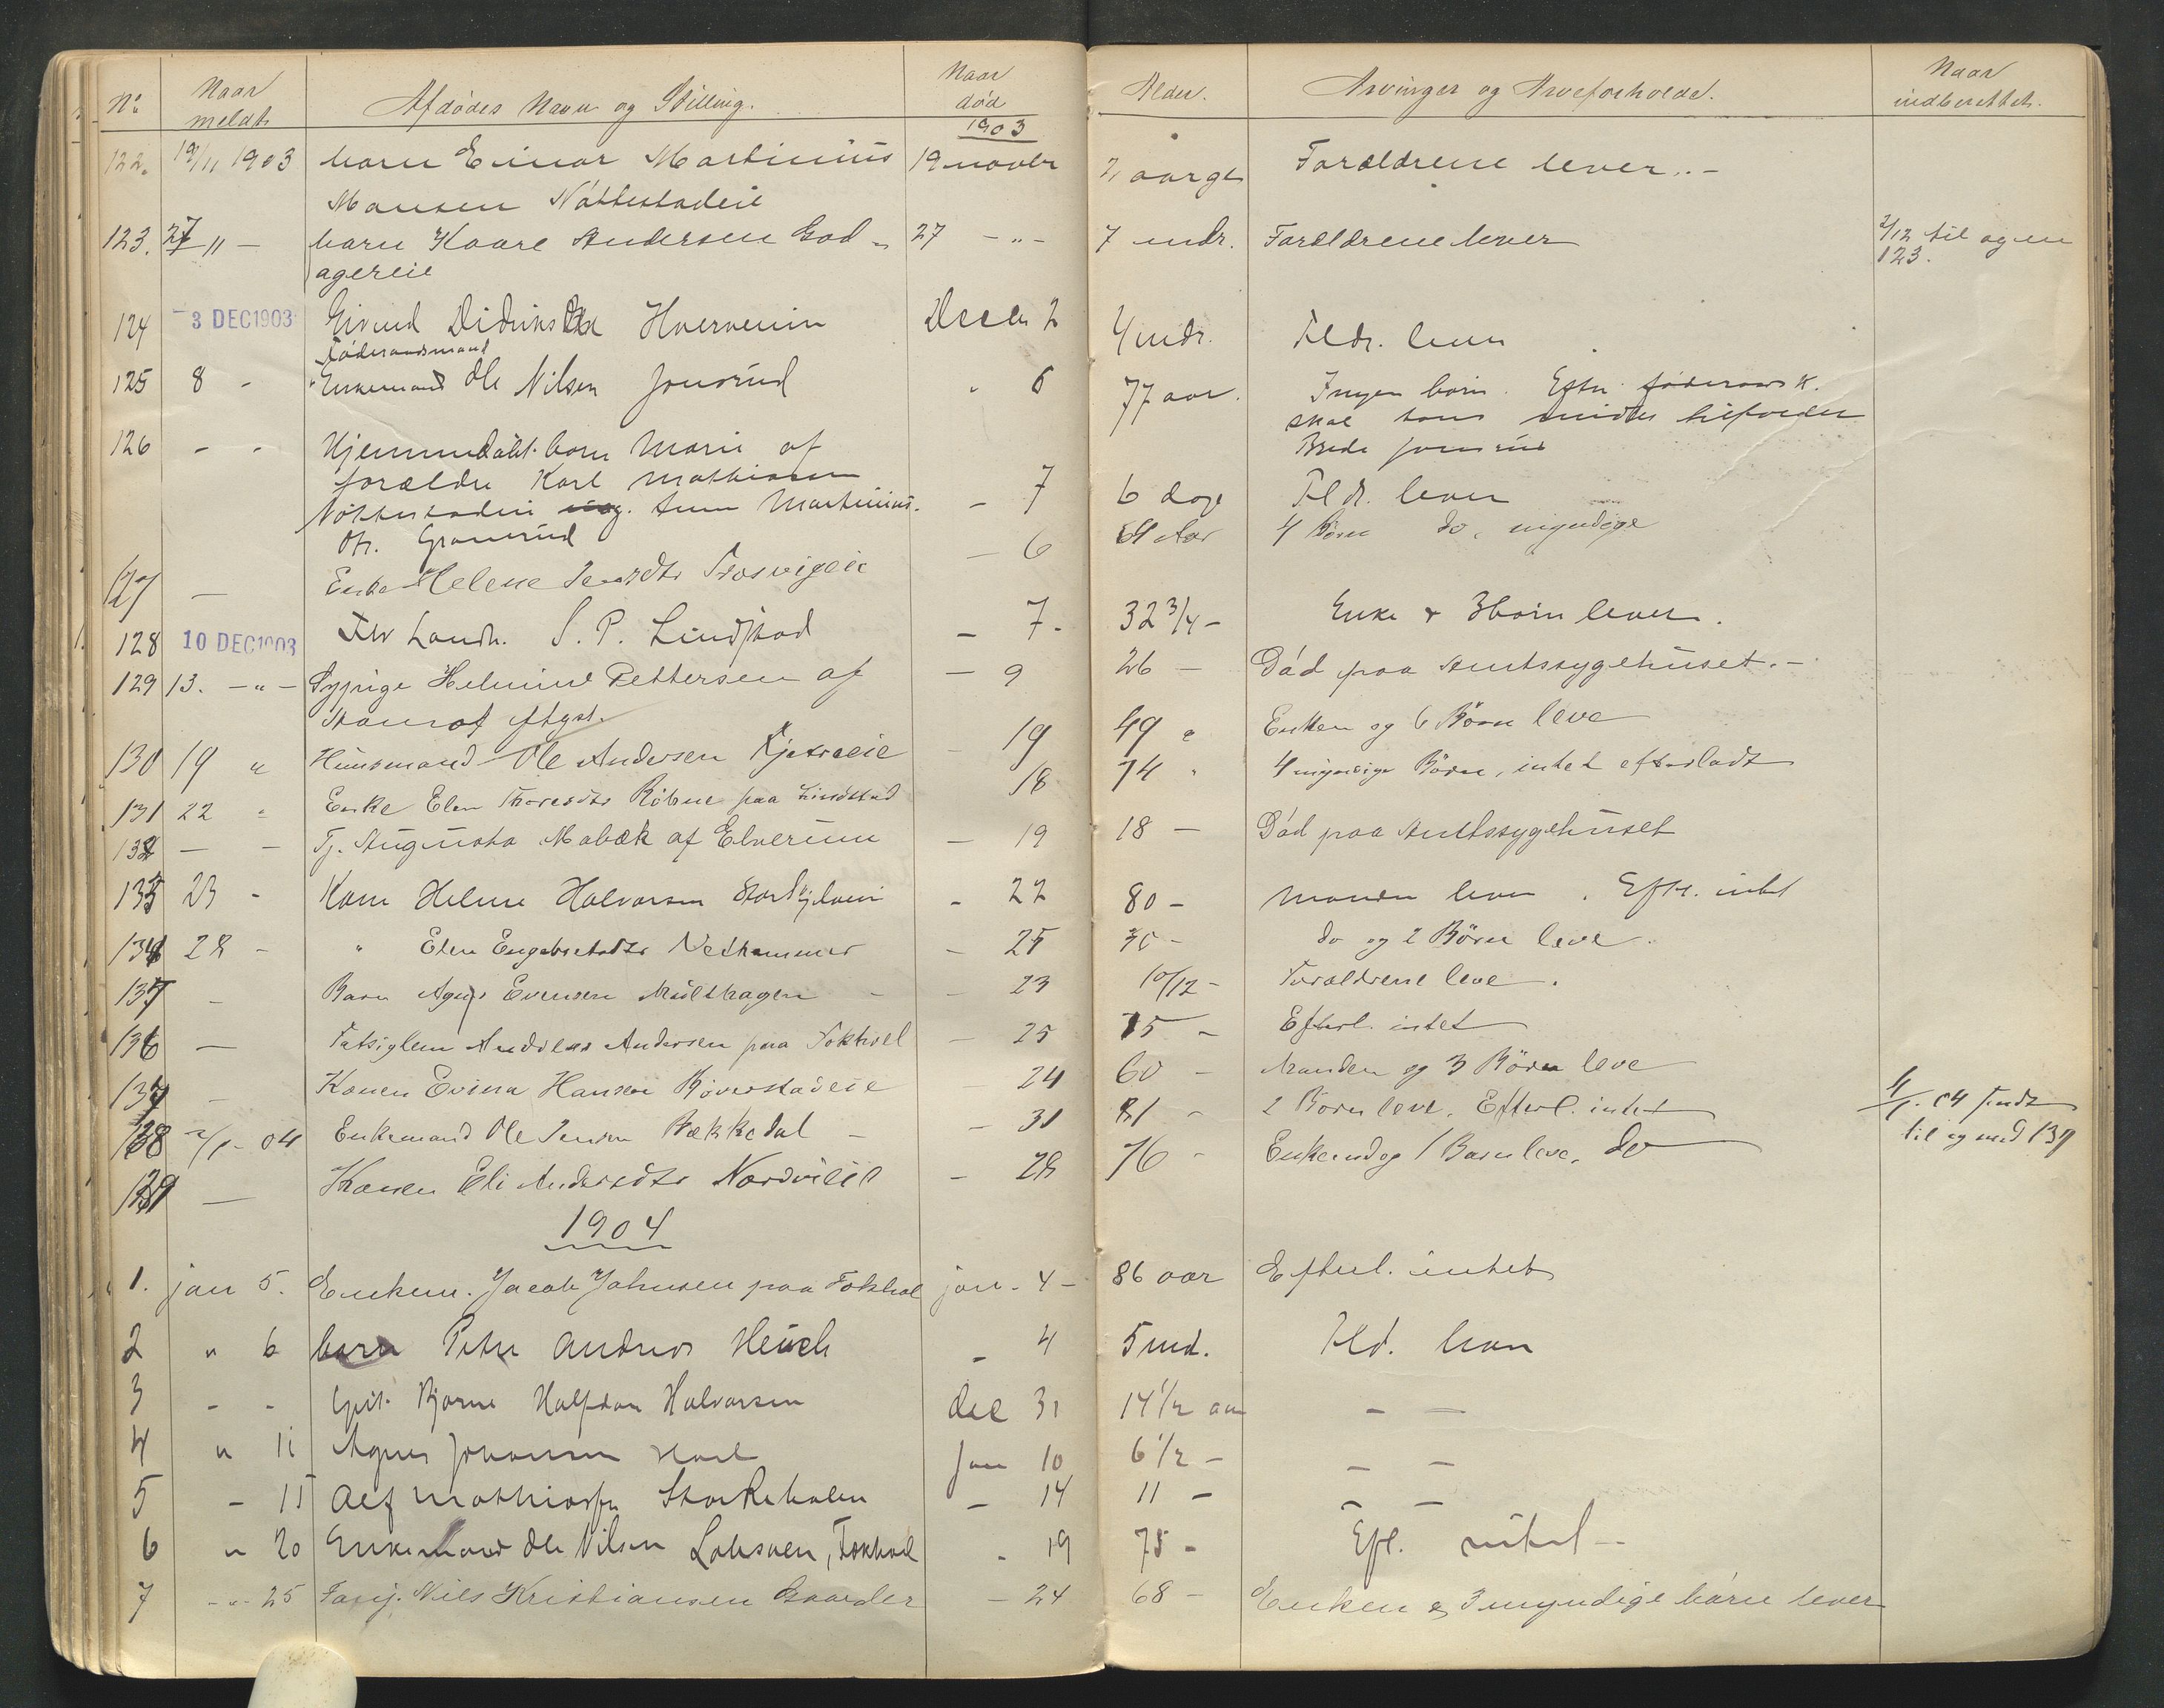 No Naar meldt. Afdødes Navn og Stilling. Naar død 1903 Alder. Arvinger og Arveforholde. Naar indberettet.
122. 19/11 1903 barn Einar Martinius 19 novbr 2 aargl Forældrene lever.-
Mansen Nóttestadeie
123. 27/11 - barn Kaare Andersen God- 27 -"- 7 mdr. Forældrene lever 2/12 til og m 123.
agereie
124 -3 DEC 1903 Eivind Didriks Hverven Decbr 2 4 mdr. Fldr. lever
Föderaadsmand
125 8 - Enkemand Ole Nilsen Jonsrud " 6 77 aar. Ingen børn. Efter föderaads K.
skal hans tilfalder
Brede Jonsrud
126 - - Hjemmedøbt barn Marie af
forældre Karl Mathiasen
Nöttestadeie og. Anna Martinius- - 7 6 dage Fldr. lever
dtr. Gramrud
127 — Enke Helene Trosvigeie — 6 64 Aar 4 Børn do, myndige
128 10 DEC 1903 Landh. S. P. Lindstad - 7. 32 3/4 - Enke & 3 børn lever.
129 13. -"- Sypige Helmine Pettersen af - 9 26 - Död paa Amtssygehuset.-
Stamsaf
130 19 " Huusmand Ole Andersen — 19 49 " Enken og 6 Börn leve
131 22 " Enke Elen Thoresdtr Röbne paa Lindstad 18 74 " 4 myndige Börn, intet efterladt
132 — — Tj. Augusta Mabæk af Elverum — 19 18 — Död paa Amtssygehuset
133 23 - Kone Helene Halvorsen - 22 80 - Manden lever. Eftl. intet
134 28 - " Elen Engebretsdtr Nethammer - 25 30 - do og 2 Börn leve.
135 - Barn Agnes Evensen Multhagen - - 23 10/12 - Forældrene leve.
136 — Fatsiglem Andreas Andersen paa Fokhol — 25 75 - Efterl. intet
137 - Konen Evina Hansen Röverstadeie 24 60 - Manden og 3 Börn leve
138 2/1 - 04 Enkemand Ole Jensen Bækkedal - - 31 81 - 2 Børn leve. Efterl. intet 4/1. 04 sendt
til og med 139
139 — Konen Eli Andersdtr Nordvieie — 28 76 - Enkemd og 1 Barn leve. do
1904
1. jan 5. Enkem. Jacob Johnsen paa Fokhol jan. 4 - 86 aar Efterl. intet
2 " 6 barn Petra Andreas Heuch - 4 5 md. Fld. lever
3 - - Bjarne Halfdan Halvorsen dec 31 14 1/2 aar - —
4 " 11 Agnes Johansen Jan 10 6 1/2 - — —
5 - 15 Alf Mathiasen Storkeholen - 14 11 - — —
6 " 20 Enkemand Ole Nilsen Lohsven, Fokhol - 19 75 - Eftl. intet -
7 -"- 25 Nils Kristiansen Gaarder - 24 68 - Enken & 3 myndige börn lever